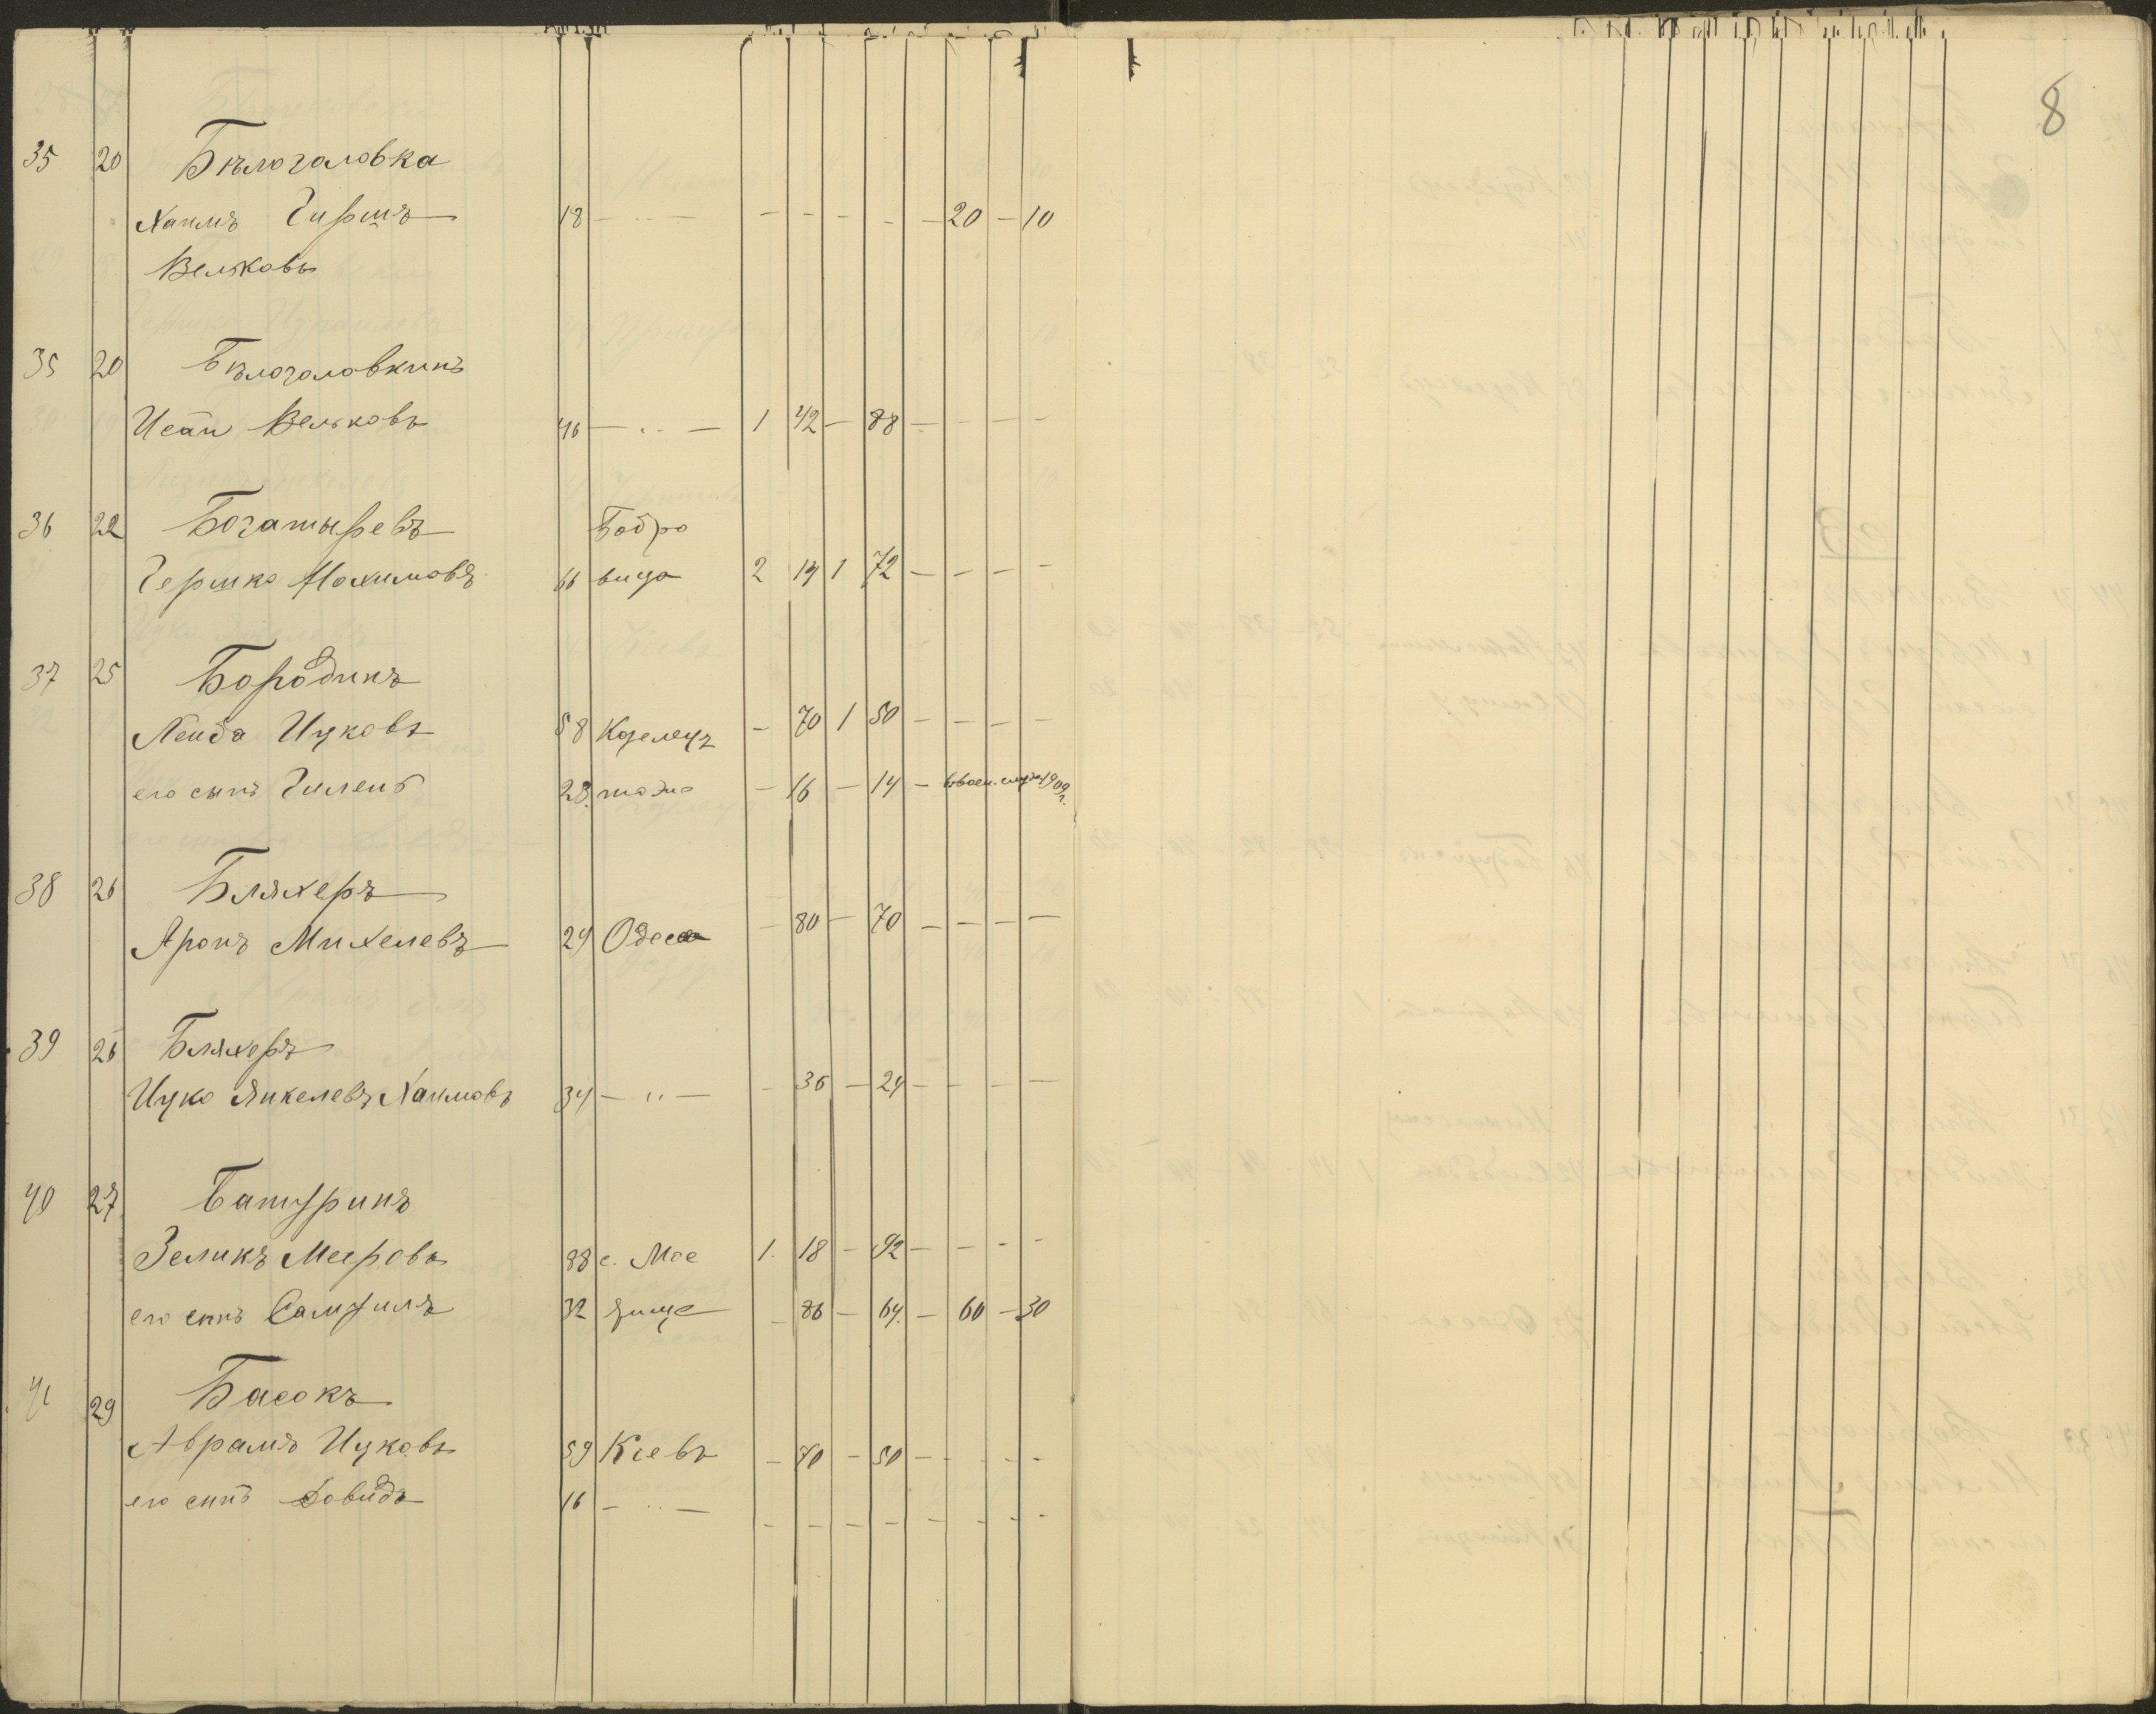 8
35 20 Бѣлоголовка
Хаимъ Гиршъ 18 — " — - - - - - — 20 — 10
Вельковъ
35 20 Бѣлоголовкинъ
Исай Вельковъ 46 — " — 1 42 — 88 — - - -
36 22 Богатыревъ Бобро
Гершко Нохимовъ 66 вица 2 14 1 72 — - - -
37 25 Бородинъ
Лейба Ицковъ 58 Козелецъ — 70 1 50 — - - -
его сынъ Гилель 28 тоже — 16 — 14 — въ воен. служ. 1909 г.
38 26 Бляхеръ
Аронъ Михелевъ 24 Одеса — 80 — 70 — - - -
39 26 Бляхеръ
Ицко Янкелевъ Хаимовъ 34 — " — - 36 — 24 — - - -
40 27 Батуринъ
Зеликъ Мееровъ 88 с. Мое 1. 18 — 92 — - - -
его сынъ Самуилъ 32 — 86 — 64 — 60 — 30
41 29 Басокъ
Аврамъ Ицковъ 59 Кіевъ — 70 — 50 — - - -
его сынъ Довидъ 16 — " — - - - - - - - -